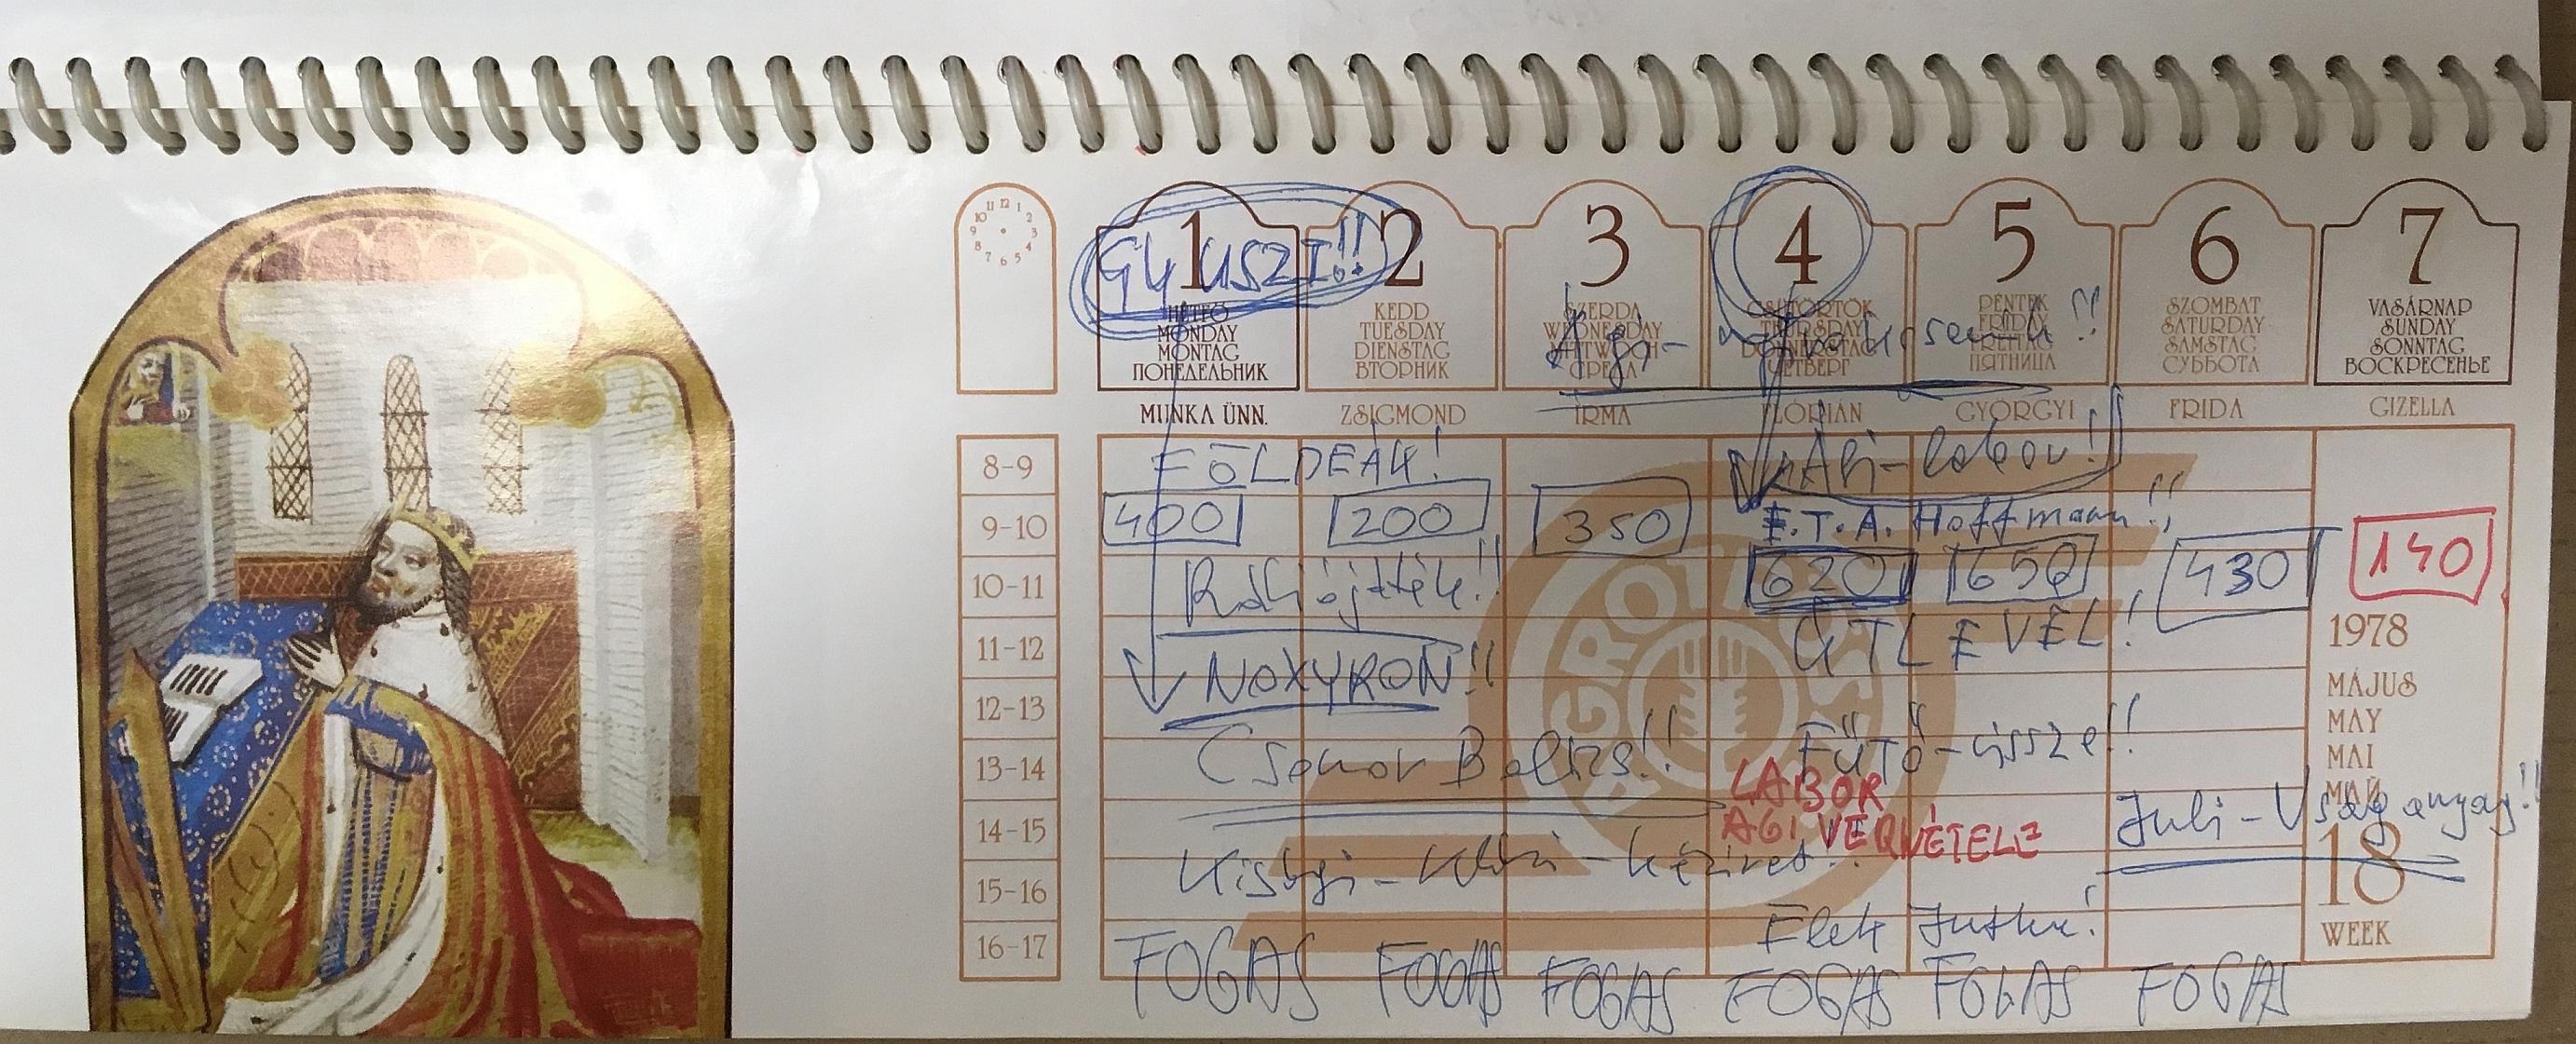 11 12 1
10 2
9 3
8 4
7 6 5
1 2 3 4 5 6 7
GYUSZI!!
HÉTFŐ
MONDAY
MONTAG
ПОНЕДЕЛЬНИК
KEDD
TUESDAY
DIENSTAG
ВТОРНИК
SZERDA
WEDNESDAY
MITTWOCH
СРЕДА
CSÜTÖRTÖK
THURSDAY
DONNERSTAG
ЧЕТВЕРГ
PÉNTEK
FRIDAY
FREITAG
ПЯТНИЦА
SZOMBAT
SATURDAY
SAMSTAG
СУББОТА
VASÁRNAP
SUNDAY
SONNTAG
ВОСКРЕСЕНЬЕ
Ági-
MUNKA ÜNN. ZSIGMOND IRMA FLÓRIÁN GYÖRGYI FRIDA GIZELLA
8-9 FÖLDEÁK! Ági-labor!
9-10 400 200 350 E.T.A. Hoffmann!!
10-11 Rádiójáték!! 620 1650 430 140
11-12 NOXYRON!! ÚTLEVÉL!
12-13
13-14 Csonor Balázs!! FŰTŐ-vissza!!
LABOR
14-15 ÁGI VÉRVÉTELE Juli-
15-16 kézirat..
16-17 Elek Jutka!
FOGAS FOGAS FOGAS FOGAS FOGAS FOGAS
1978
MÁJUS
MAY
MAI
МАЙ
18
WEEK
AGROTRÖSZT